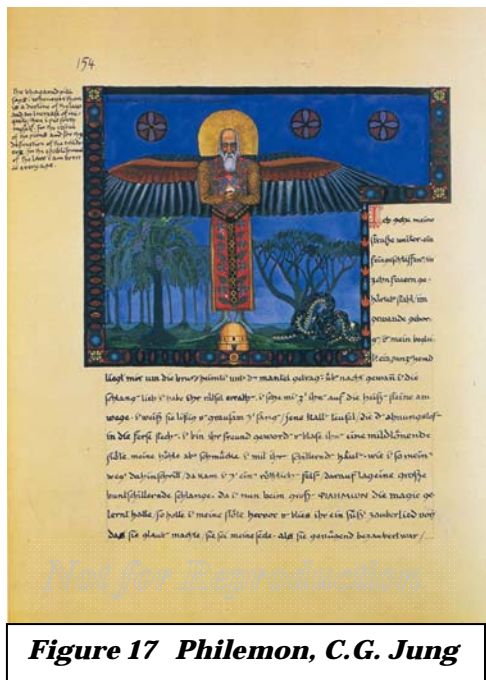 154
the bhagavadgita
says: whenever there
is a decline of the law
and an increase of ini-
quity / then i put forth
myself. for the rescue
of the pious and for the
destruction of the evildo-
ers. for the establishment
of the law i am born
in every age.
Ich gehe meine
strasse weiter. ein
feingeschliffen, in
zehn feuern ge-
härtet stahl / im
gewande gebor-
mein beglei-
ein
liegt mir um die brust / heimli unt d mantel getrag. üb nacht gewan i die
schlang lieb i habe ihr räthsel errath. i seze mi z ihr auf die heiss steine am
wege. i weiss sie listig grausam z fang / jene kalt teufel / die d ahnungslos
in die ferse stech. i bin ihr freund geword blase ihr eine mildtönende
flöte. meine höhle ab schmücke i mit ihr schillernd häut. wie i so mein
weg dahinschritt / da kam i z ein röthlich fels / darauf lag eine grosse
buntschillernde schlange. da i nun beim gross ΦΙΛΗΜΩΝ die magie ge-
lernt hatte / so holte i meine flöte hervor blies ihr ein süss zauberlied vor
das sie glaub machte, sie sei meine seele. als sie genügend bezaubert war /
Not for Reproduction
Figure 17 Philemon, C.G. Jung